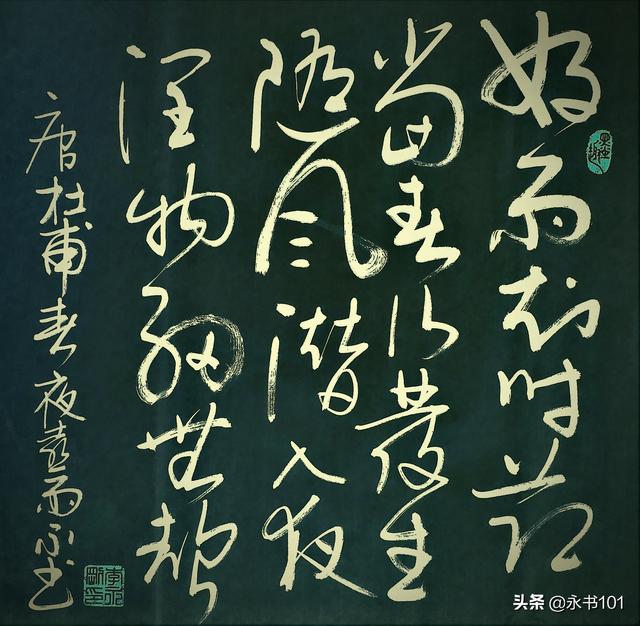 好雨知时节
當春乃發生
随风潜入夜
润物细無聲
唐杜甫春夜喜雨永书
头条 @永书101